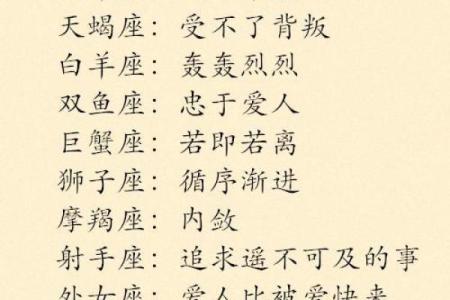 天蝎座：受不了背叛
白羊座：轰轰烈烈
双鱼座：忠于爱人
巨蟹座：若即若离
狮子座：循序渐进
摩羯座：内敛
射手座：追求遥不可及的事
处女座：爱人比被爱快来